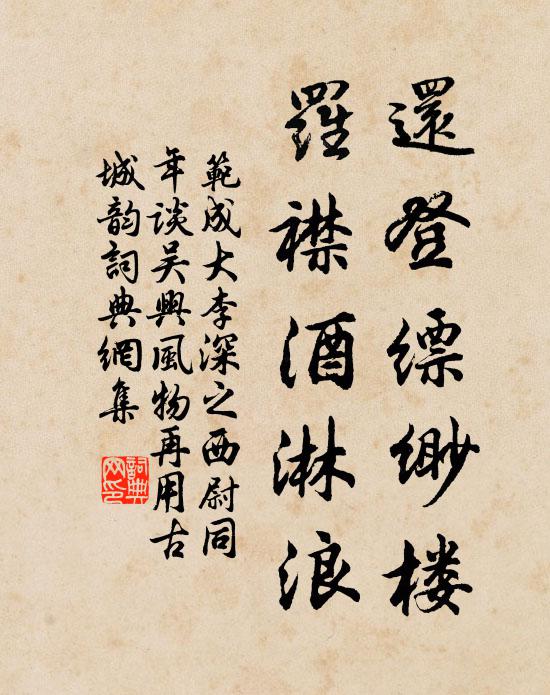 還登縹緲楼
羅襟酒淋浪
範成大李深之西尉同
年談吴興風物再用古
城韵詞典網集
詞典
网印